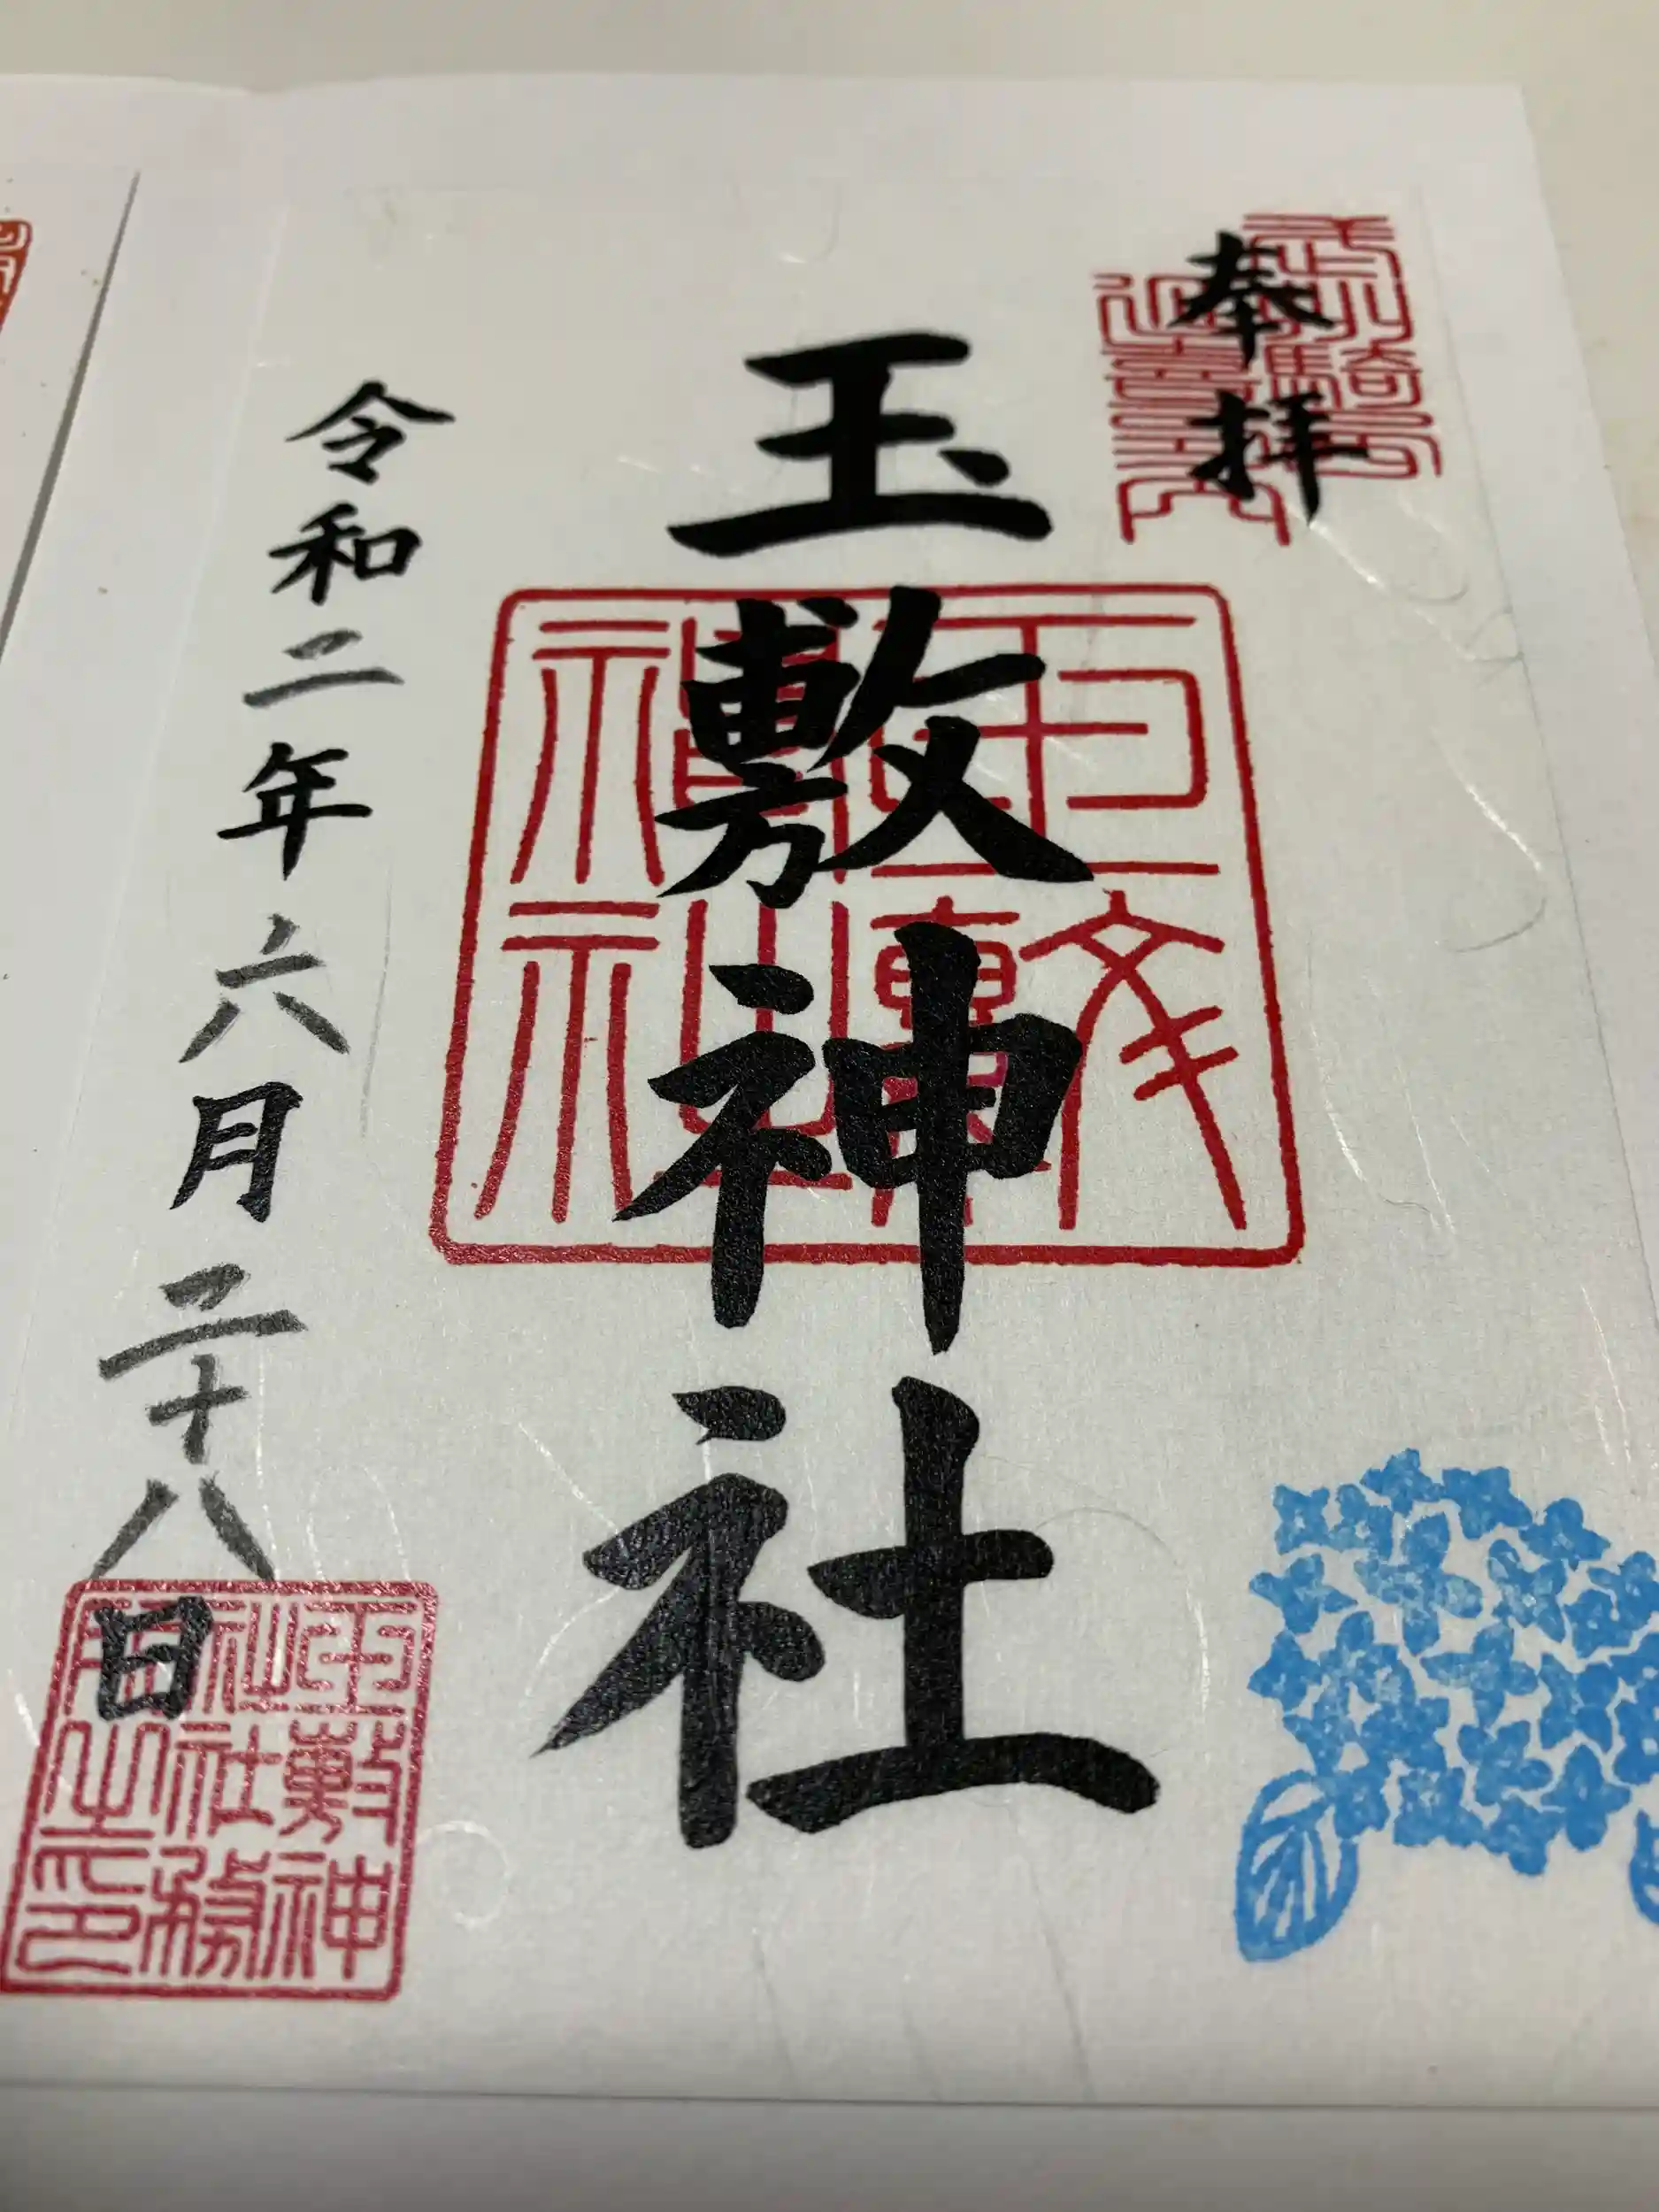 奉拝
玉敷神社
令和二年六月二十八日
玉敷神社
玉敷神社社務所之印